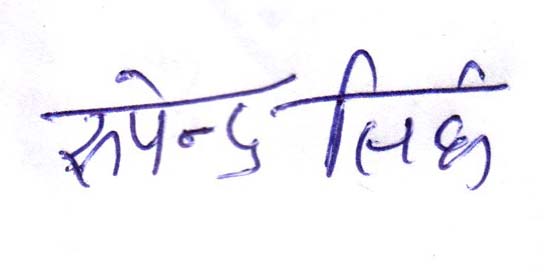 रुपेन्द्र सिंह